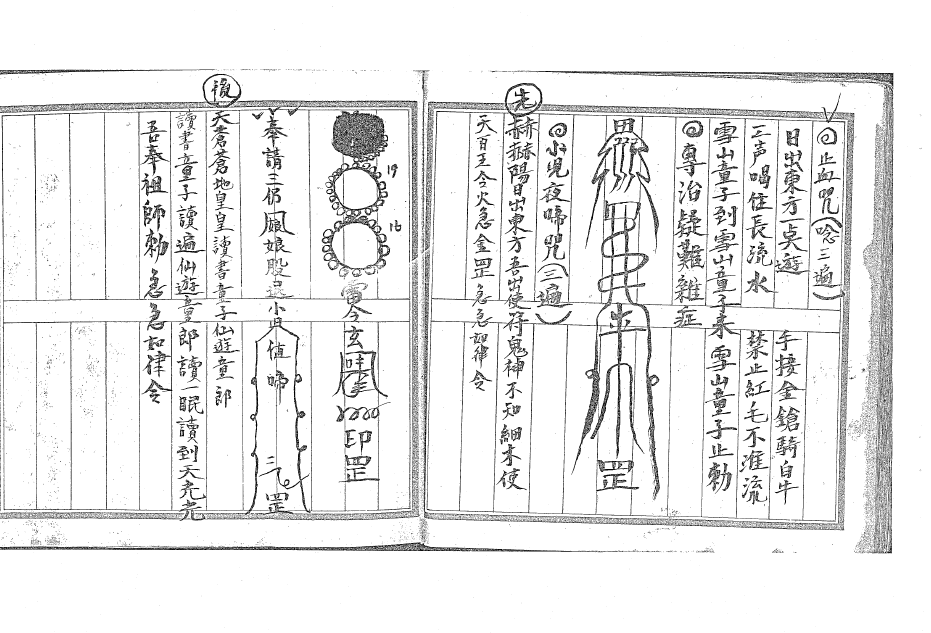 止血咒(唸三遍)
日出東方一点遊 手接金鎗騎白牛
三声喝住長流水 禁止紅毛不准流
雪山童子到雪山童子来 雪山童子止勅
專治疑難雜症
罡
小児夜啼咒(三遍)
先
赫赫陽日出東方吾出使符鬼神不知細木使
天百王令火急金罡 急急如律令
19
16
雷令玄
印罡
奉請三侶 娘 小児值啼 罡
後
天蒼蒼地皇皇讀書童子仙遊童郎
讀書童子讀遍仙遊童郎 讀一眠讀到天光光
吾奉祖師勅 急急如律令